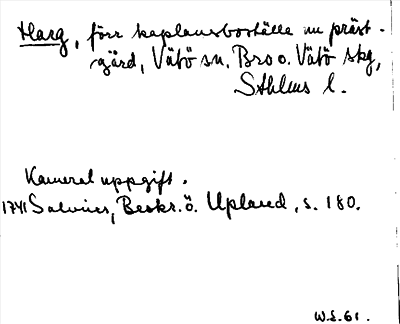 Harg, förr kaplansboställe nu präst-
gård, Vätö sn. Bro o. Vätö skg,
Sthlms l.
Kameral uppgift.
1741 Salvius, Beskr. ö. Upland, s. 180.
W.L. 61.